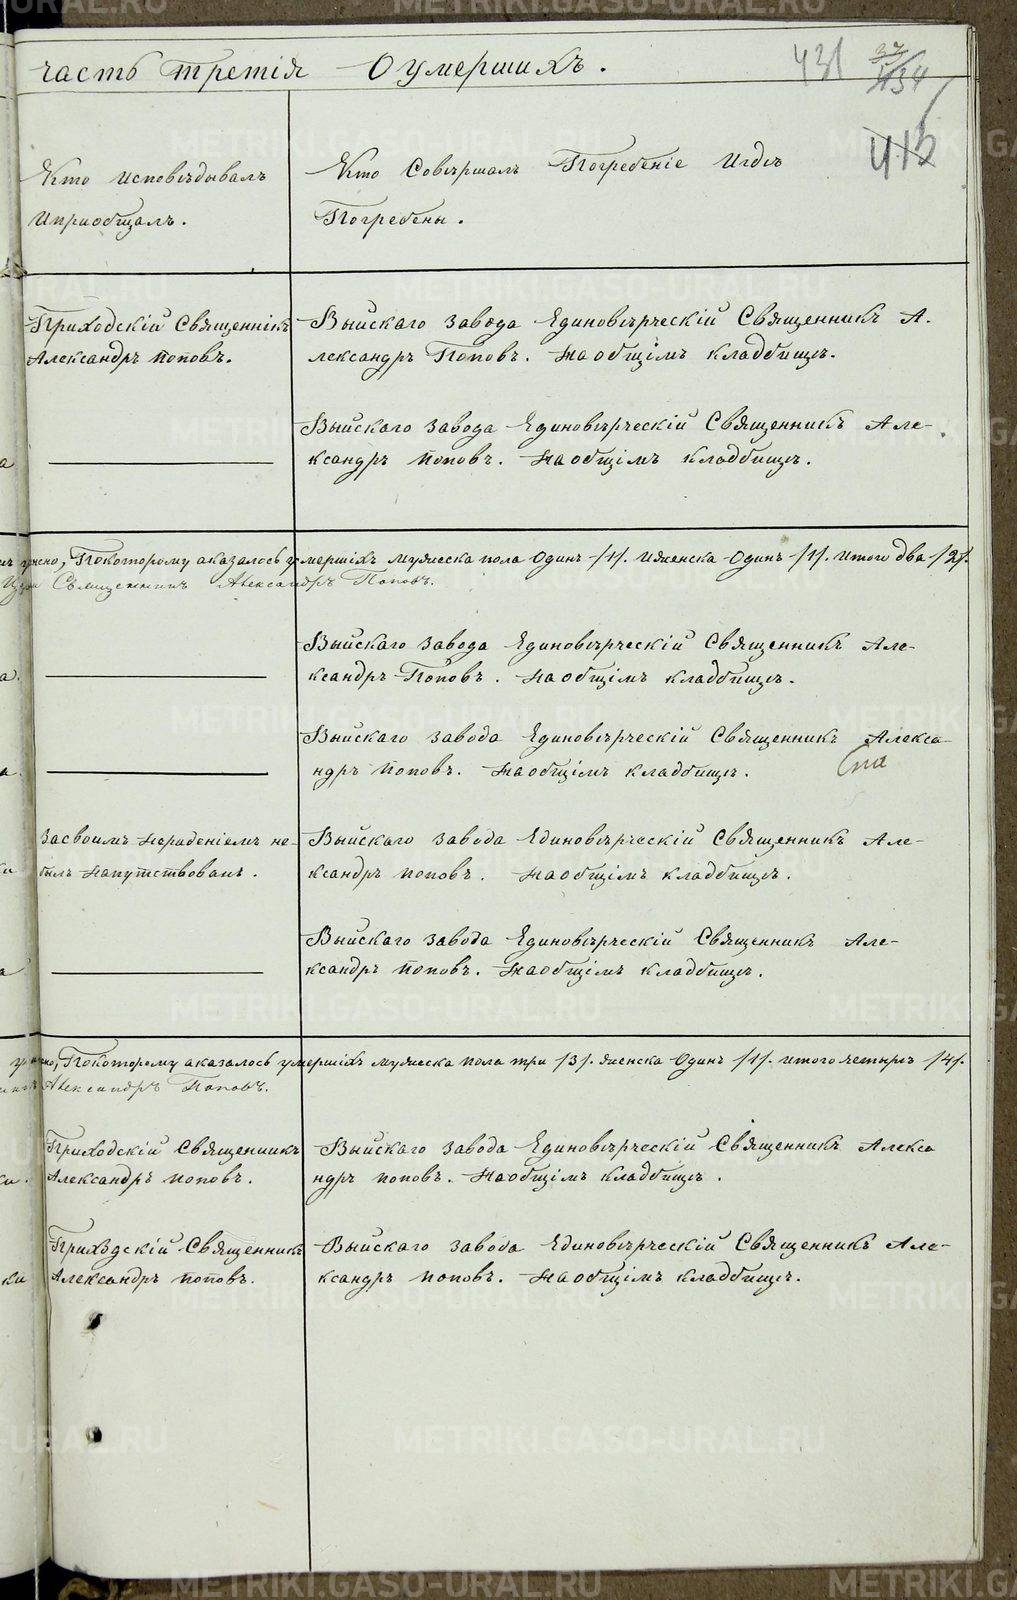 часть третія О умершихъ.
431
37
434
415
Кто исповѣдывалъ
Ипріобщалъ.
Кто Совѣршалъ Погребеніе Игдѣ
Погребены.
Приходскій Священнікъ
Александръ Поповъ.
Выйскаго завода Единовѣрческій Священникъ А-
лександръ Поповъ. На общімъ кладбищѣ.
Выйскаго завода Единовѣрческій Священникъ Але-
ксандръ Поповъ. На общімъ кладбищѣ.
Покоторому аказалось умершіхъ мужеска пола Одинъ /1/. Иженска Одинъ /1/. Итого два /2/.
Священникъ Александръ Поповъ.
Выйскаго завода Единовѣрческій Священникъ Але-
ксандръ Поповъ. На общімъ кладбищѣ.
Выйскаго завода Единовѣрческій Священникъ Алекса-
ндръ Поповъ. На общімъ кладбищѣ.
Засвоимъ Нерадѣніемъ не-
былъ Напутствованъ.
Выйскаго завода Единовѣрческій Священникъ Але-
ксандръ Поповъ. На общімъ кладбищѣ.
Выйскаго завода Единовѣрческій Священникъ Але-
ксандръ Поповъ. На общімъ кладбищѣ.
Покоторому аказалось умершіхъ мужеска пола три /3/. женска Одинъ /1/. итого четырѣ /4/.
Александръ Поповъ.
Приходскій Священникъ
Александръ Поповъ.
Выйскаго завода Единовѣрческій Священникъ Алекса
ндръ Поповъ. На общімъ кладбищѣ.
Приходскій Священникъ
Александръ Поповъ.
Выйскаго завода Единовѣрческій Священникъ Але-
ксандръ Поповъ. На общімъ кладбищѣ.
METRIKI.GASO-URAL.RU